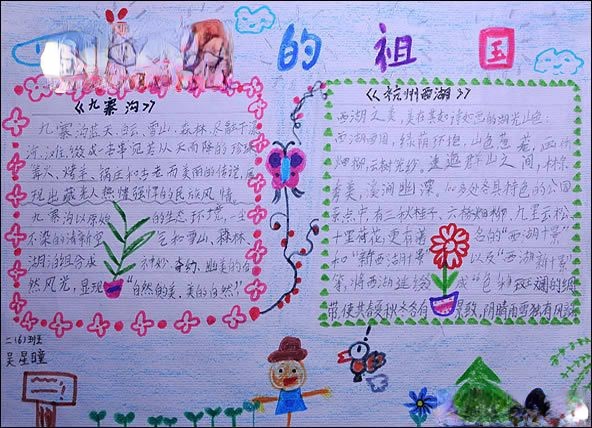 的祖国
《九寨沟》
九寨沟蓝天、白云、雪山、森林、尽融于瀑、
河、滩、
舞火、烤羊、锅庄和古老而美丽的传说,展
现出藏羌人热情强悍的民族风情。
九寨沟以原始的生态环境,一尘
不染的清新空气和雪山、森林、
湖泊组合成神妙、奇幻、幽美的自
然风光,显现“自然的美,美的自然”
《杭州西湖》
西湖之美,美在其如诗如画的湖光山色:
西湖四周,绿荫环抱,山色葱茏,画桥
烟柳,云树笼纱,逶迤群山之间,林泉
秀美,溪涧幽深。100多处各具特色的公园
景点中,有三秋桂子、六桥烟柳、九里云松、
十里荷花,更有著名的“西湖十景”
和“新西湖十景”以及“西湖新十景”
等,将西湖连缀成“色彩斑斓的绸
带,使其春夏秋冬各有景致,阴晴雨雪独有风韵
二(6)班
吴星瞳